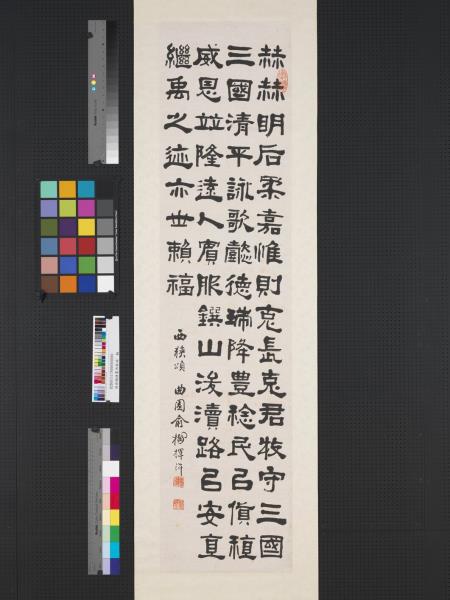 赫赫明后柔嘉惟則克長克君牧守三國
三國清平詠歌懿德瑞降豊稔民㠯貨稙
威恩竝隆遠人賓服鐫山浚瀆路㠯安直
繼禹之迹亦世賴福
西狹頌 曲園俞樾